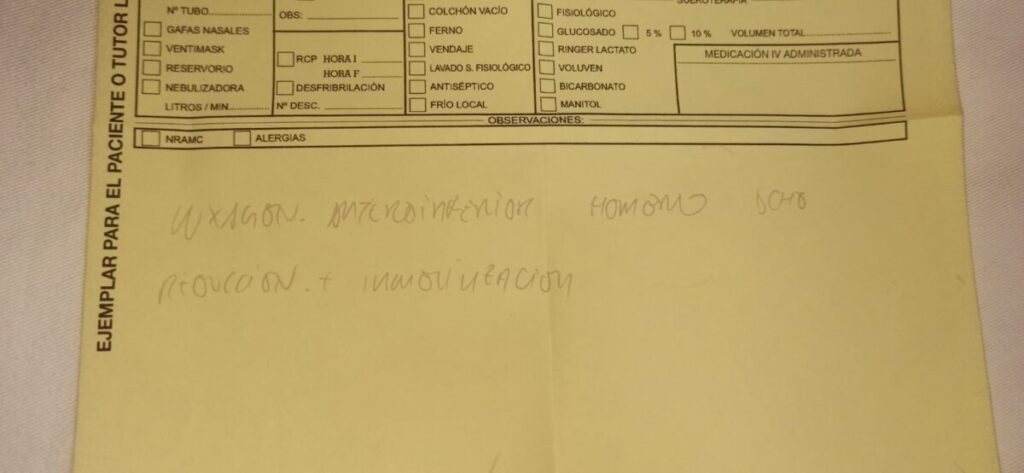 EJEMPLAR PARA EL PACIENTE O TUTOR L
Nº TUBO
GAFAS NASALES
VENTIMASK
RESERVORIO
NEBULIZADORA
LITROS / MIN
OBS:
RCP HORA I
HORA F
DESFRIBRILACIÓN
Nº DESC.
COLCHÓN VACÍO
FERNO
VENDAJE
LAVADO S. FISIOLÓGICO
ANTISÉPTICO
FRÍO LOCAL
SUEROTERAPIA
FISIOLÓGICO
GLUCOSADO 5 % 10 % VOLUMEN TOTAL
RINGER LACTATO
VOLUVEN
BICARBONATO
MANITOL
MEDICACIÓN IV ADMINISTRADA
OBSERVACIONES:
NRAMC ALERGIAS
LUXACION. ANTEROINFERIOR HOMBRO DCHO
REDUCCION. + INMOVILIZACION